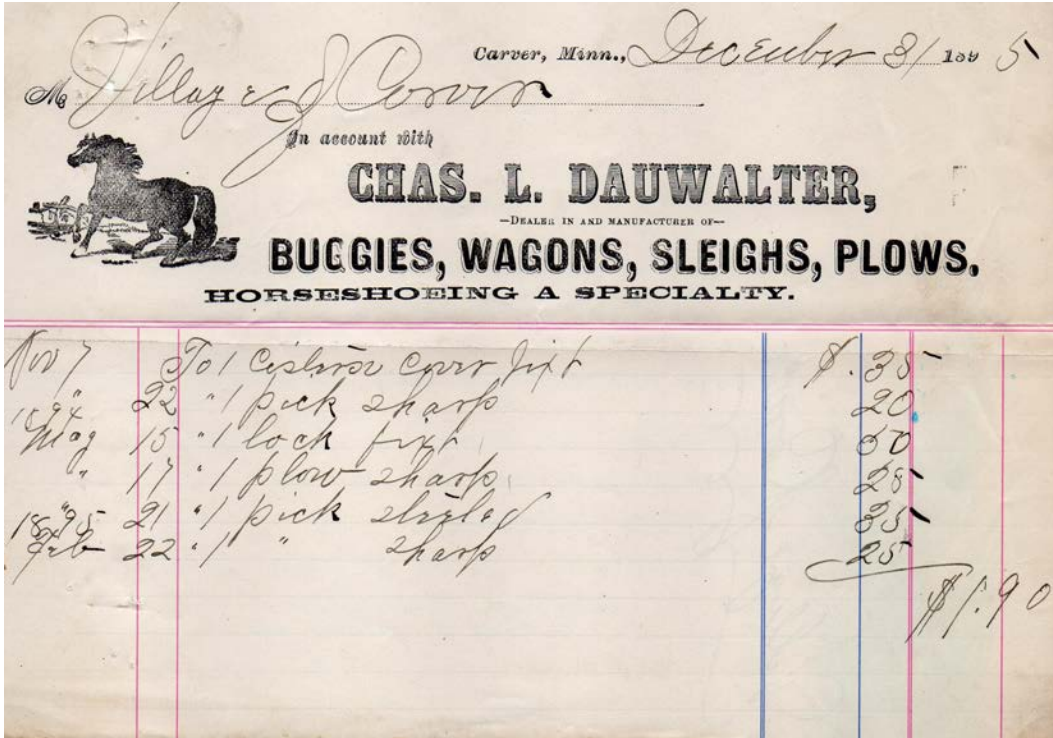 Carver, Minn., December 31 1895
M Village of Carver
In account with
CHAS. L. DAUWALTER,
—DEALER IN AND MANUFACTURER OF—
BUGGIES, WAGONS, SLEIGHS, PLOWS.
HORSESHOEING A SPECIALTY.
Nov 7 To 1 Cistern Cover fixt $.35
" 22 "1 pick sharp 20
1894
May 15 "1 lock fixt 50
" 17 "1 plow sharp 25
" 21 "1 pick steeled 35
1895
Feb 22 "1 " sharp 25
$1.90